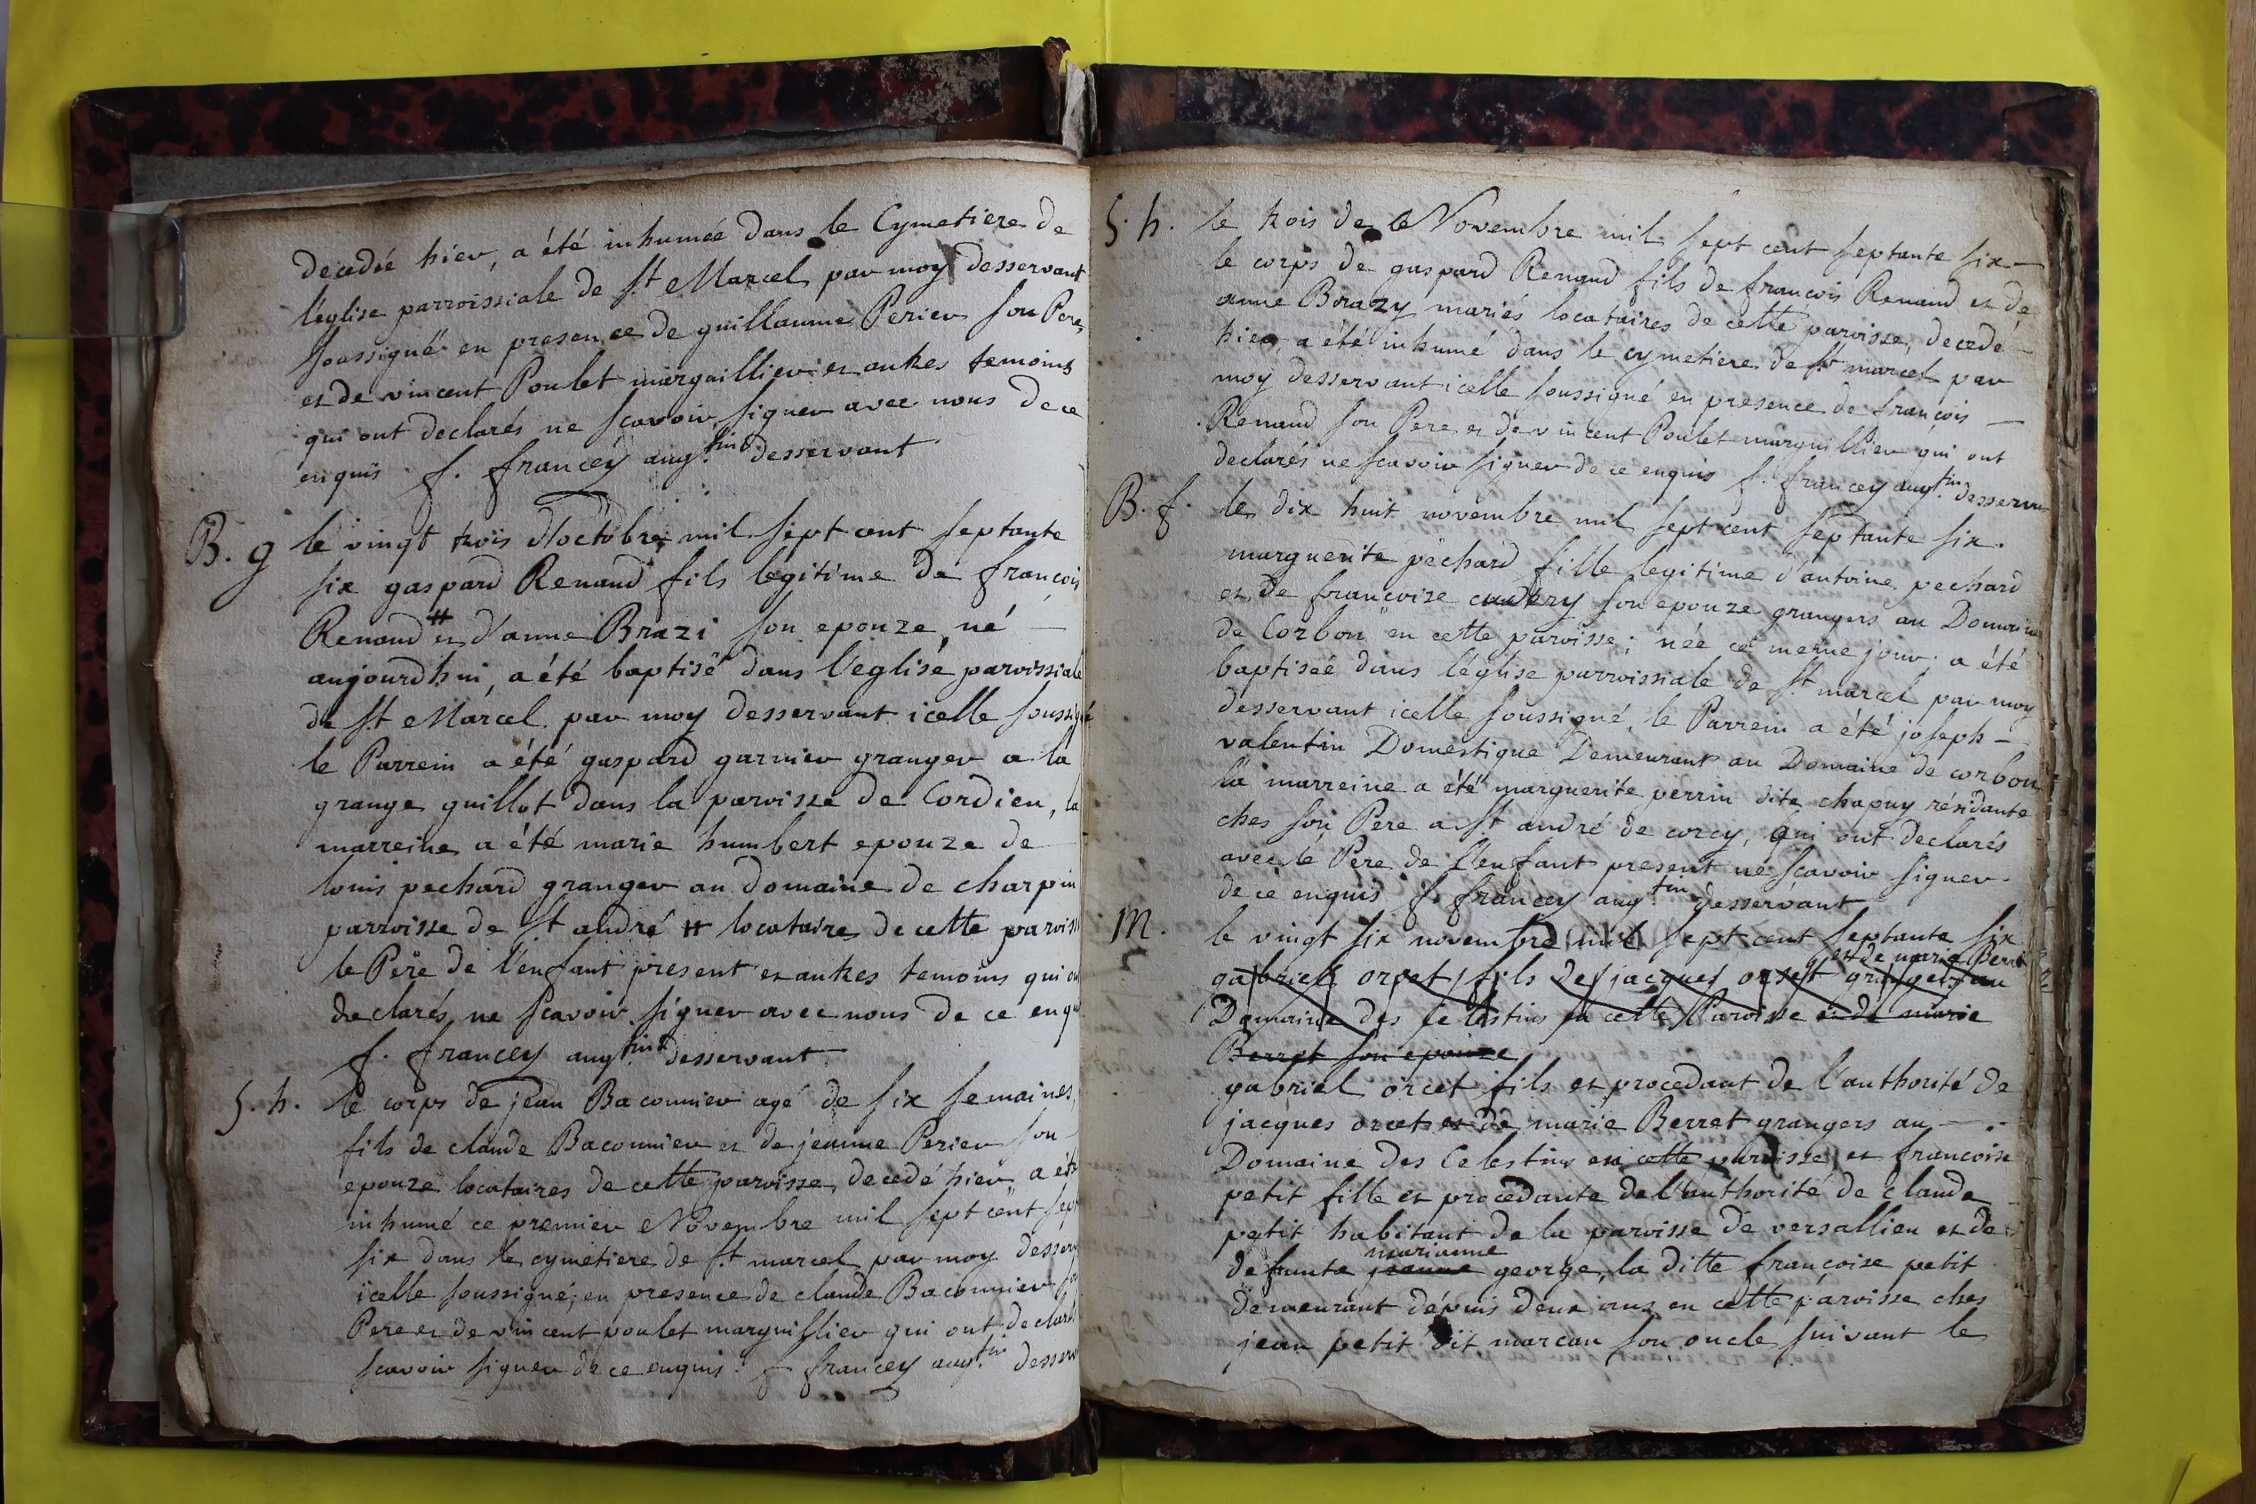 decedée hier, a été inhumée dans le Cymetiere de
l'eglise parroissiale de St Marcel par moy desservant
soussigné en presence de guillaume Perier son Pere,
et de vincent Poulet marguillier et autres temoins
qui ont declarés ne scavoir signer avec nous de ce
enquis f. francey augtin desservant
B. g le vingt trois d'octobre mil sept cent septante
six gaspard Renaud fils legitime de françois
Renaud # et d'anne Brazi son epouze, né —
aujourdhui, a été baptisé dans l'eglise parroissiale
de St Marcel par moy desservant icelle soussigné
le Parrein a été gaspard garnier granger a la
grange guillot dans la paroisse de Cordieu, la
marreine a été marie humbert epouze de
louis pechard granger au domaine de charpin
parroisse de St andré # locataire de cette paroisse
le Pere de l'enfant present et autres temoins qui ont
declarés ne scavoir signer avec nous de ce enquis
f. francey augtin desservant
S. h. le corps de jean Baconnier agé de six semaines,
fils de claude Baconnier et de jeanne Perier son
epouze locataires de cette paroisse, decedé hier, a été
inhumé ce premier Novembre mil sept cent sept
six dans le cymetiere de St marcel par moy desserv
icelle soussigné, en presence de claude Baconnier son
Pere et de vincent poulet marguillier qui ont declarés
scavoir signer de ce enquis. f francey augtin desserv
S. h. le trois de Novembre mil sept cent septante six —
le corps de gaspard Renaud fils de francois Renaud et de
anne Brazy mariés locataires de cette paroisse, decedé —
hier, a été inhumé dans le cymetiere de St marcel par
moy desservant icelle soussigné en presence de françois —
Renaud son Pere et de vincent Poulet marguillier qui ont
declarés ne scavoir signer de ce enquis f. francey augtin desservant
B. f. le dix huit novembre mil sept cent septante six.
marguerite pechard fille legitime d'antoine pechard
et de francoize cudery son epouze grangers au Domaine
de Corbon en cette paroisse; née ce meme jour, a été
baptisée dans l'église parroissiale de St marcel par moy
desservant icelle soussigné, le Parrein a été joseph —
valentin Domestique Demeurant au Domaine de corbon
la marreine a été marguerite perrin dite chapuy résidante
ches son Pere a St andré de corcy, qui ont declarés
avec le Pere de l'enfant present ne scavoir signer
de ce enquis f. francey augtin desservant
M. le vingt six novembre mil sept cent septante six
et de marie Berret
gabriel orcet fils de jacques orset granger au
Domaine des celestins en cette Paroisse et de marie
Berret son epouze
gabriel orcet fils et procedant de l'authorité de
jacques orcet et de marie Berret grangers au —
Domaine des Celestins en cette paroisse, et francoise
petit fille et procedante de l'authorité de claude
petit habitant de la paroisse de versallieu et de
marianne
defunte jeanne george, la ditte françoise petit
demeurant depuis deux ans en cette paroisse ches
jean petit dit marcan son oncle suivant le